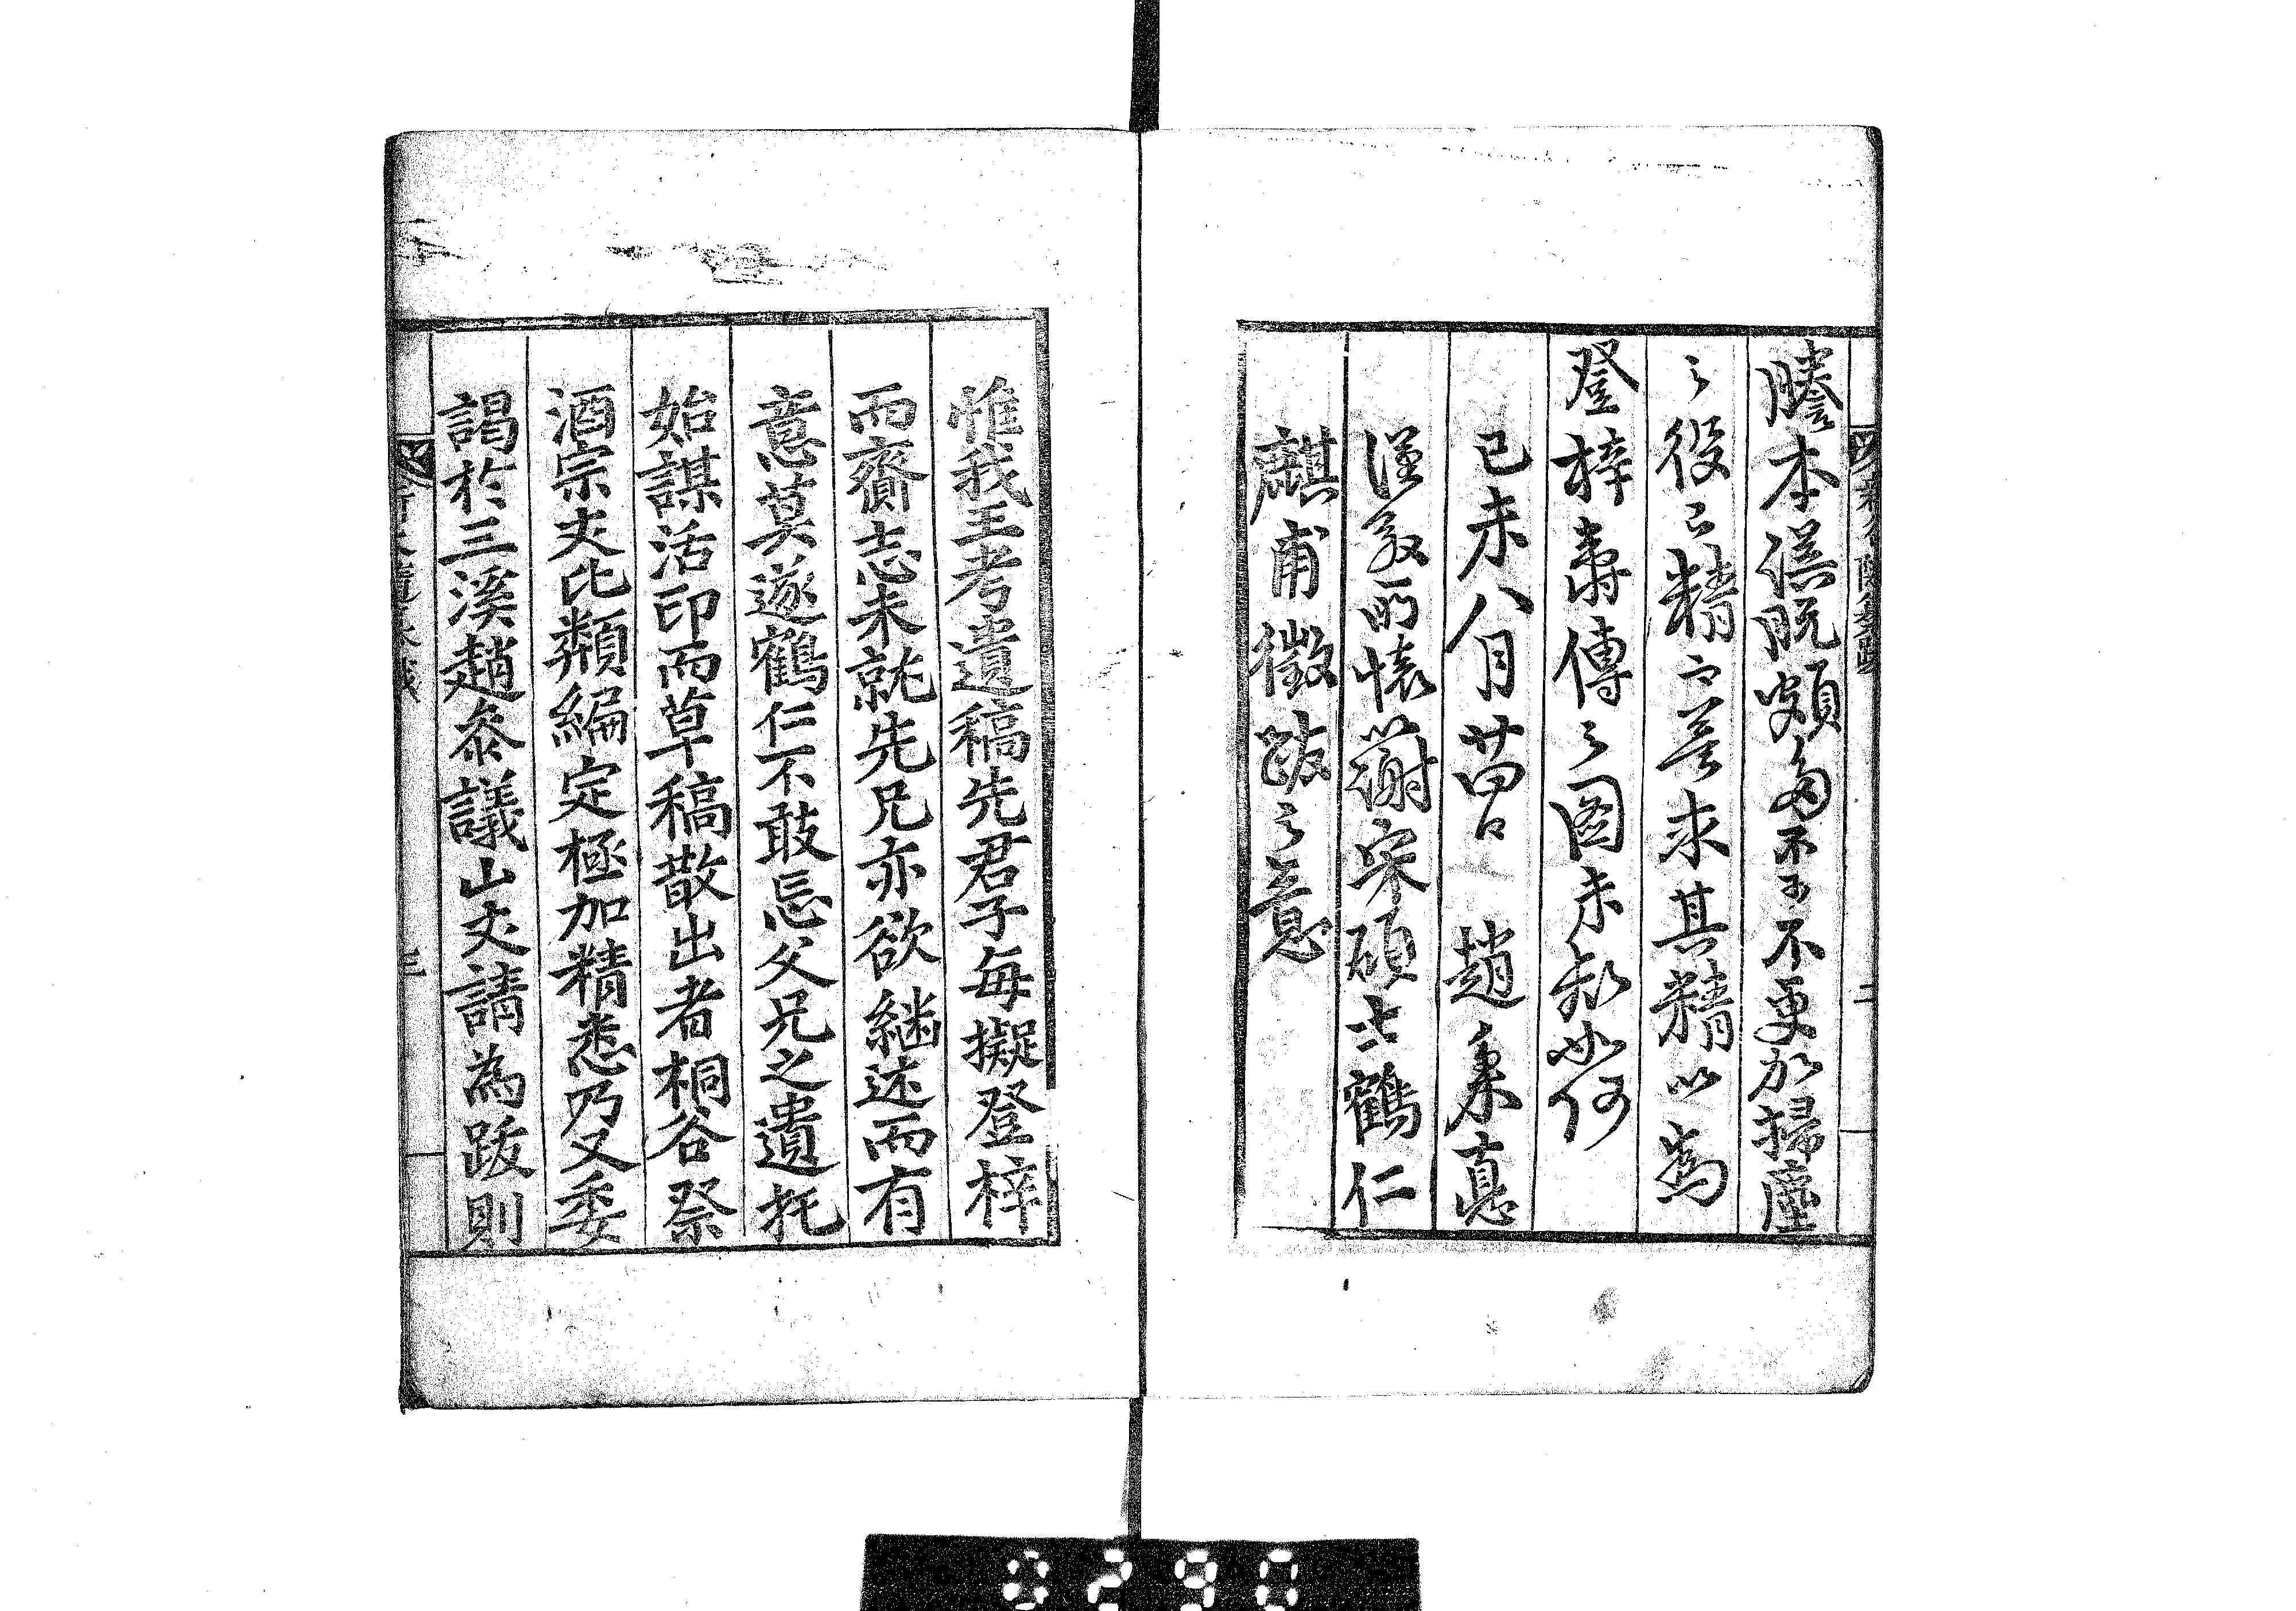 謄本誤脱頗多不可不更加掃塵
之役已精而益求其精以為
登梓壽傳之圖未知如何
己未八月 趙秉悳
謹敘所懷以謝宋碩士鶴仁
麒甫徵跋之意
二
惟我王考遺稿先君子每擬登梓
而齎志未就先兄亦欲繼述而有
意莫遂鶴仁不敢忘父兄之遺托
始謀活印而草稿散出者桐谷祭
酒宗丈比類編定極加精悉乃又委
謁於三溪趙叅議山丈請為跋則
三
0290